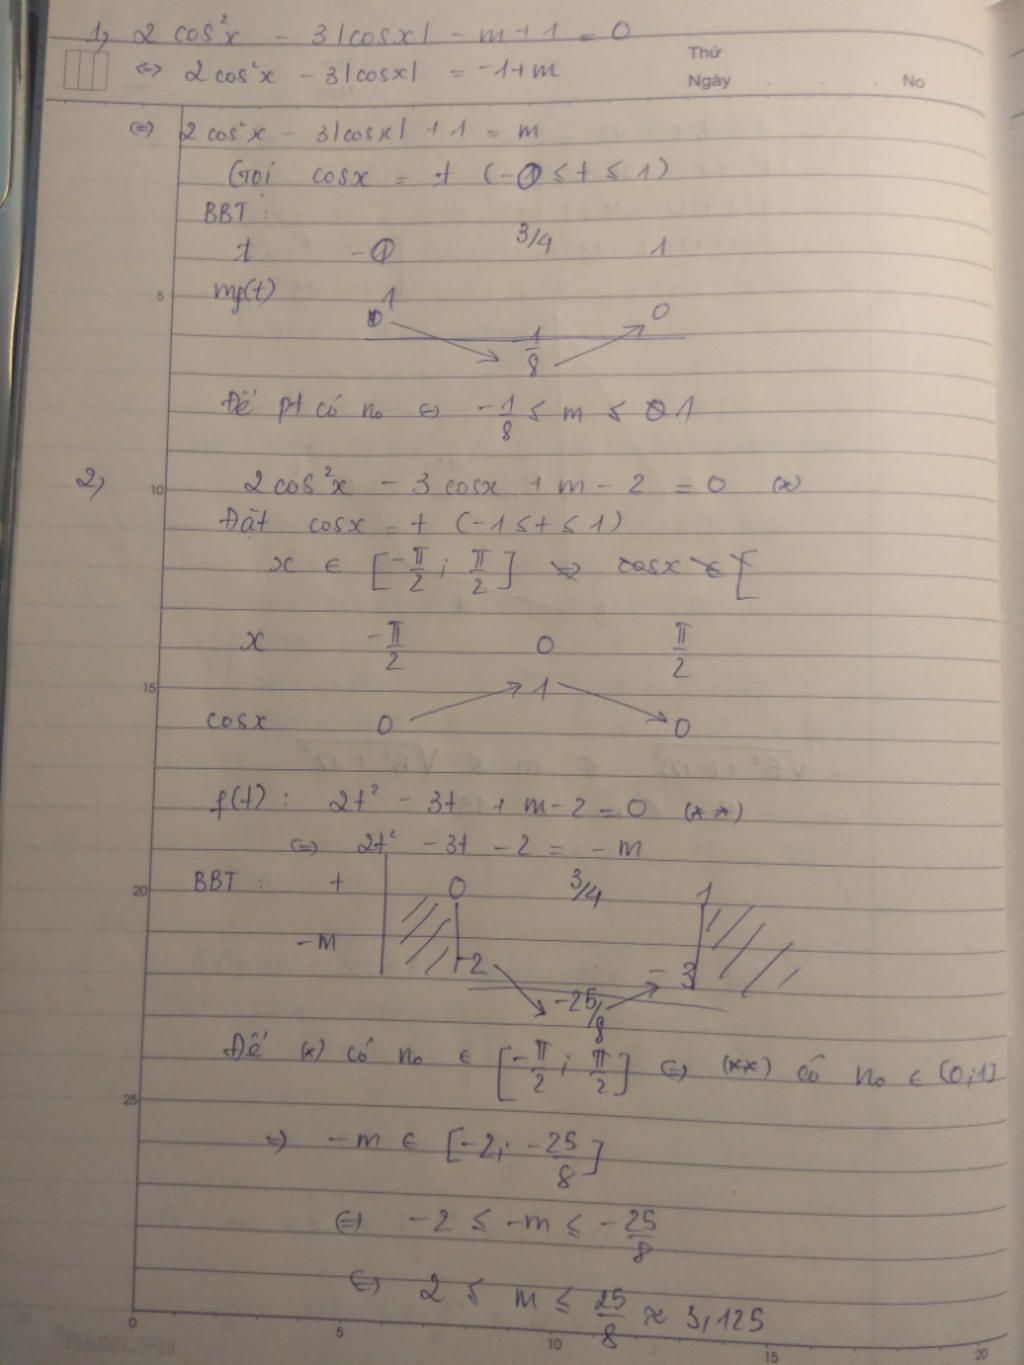 1, 2 cos²x - 3|cosx| - m + 1 = 0
Thứ
⇔ 2 cos²x - 3|cosx| = -1 + m
Ngày No
⇔ 2 cos²x - 3|cosx| + 1 = m
Gọi cosx = t (-0 ≤ t ≤ 1)
BBT:
t -0 3/4 1
mf(t) 1
0 0
5
1/8
Để pt có no ⇔ -1/8 ≤ m ≤ 1
2, 2cos²x - 3cosx + m - 2 = 0 (*)
10
Đặt cosx = t (-1 ≤ t ≤ 1)
x ∈ [-π/2 ; π/2] ⇒ cosx ∈ [
x -π/2 0 π/2
15 1
cosx 0 0
f(t): 2t² - 3t + m - 2 = 0 (**)
⇔ 2t² - 3t - 2 = -m
20 BBT: t 0 3/4 1
-m -2 -3
-25/8
Để (*) có no ∈ [-π/2 ; π/2] ⇔ (**) có no ∈ [0;1]
25
⇒ -m ∈ [-2; -25/8]
⇔ -2 ≤ -m ≤ -25/8
⇔ 2 ≤ m ≤ 25/8 ≈ 3,125
0 5 10 15 20